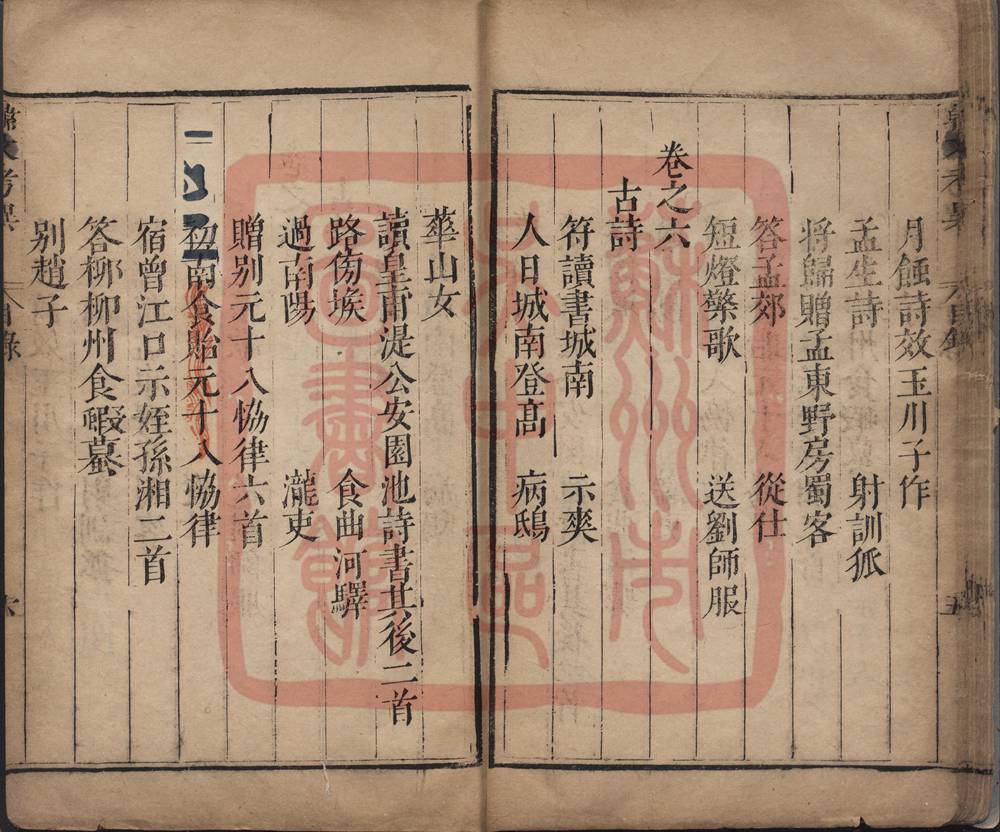 月蝕詩效玉川子作
孟生詩 射訓狐
將歸贈孟東野房蜀客
答孟郊 從仕
短燈檠歌 送劉師服
卷之六
古詩
符讀書城南 示爽
人日城南登高 病鴟
華山女
讀皇甫湜公安園池詩書其後二首
路傍堠 食曲河驛
過南陽 瀧吏
贈別元十八恊律六首
初南食貽元十八恊律
宿曾江口示姪孫湘二首
答柳柳州食蝦蟇
別趙子
韓文考異
目錄
六
五
蘇州市吳中區圖書館